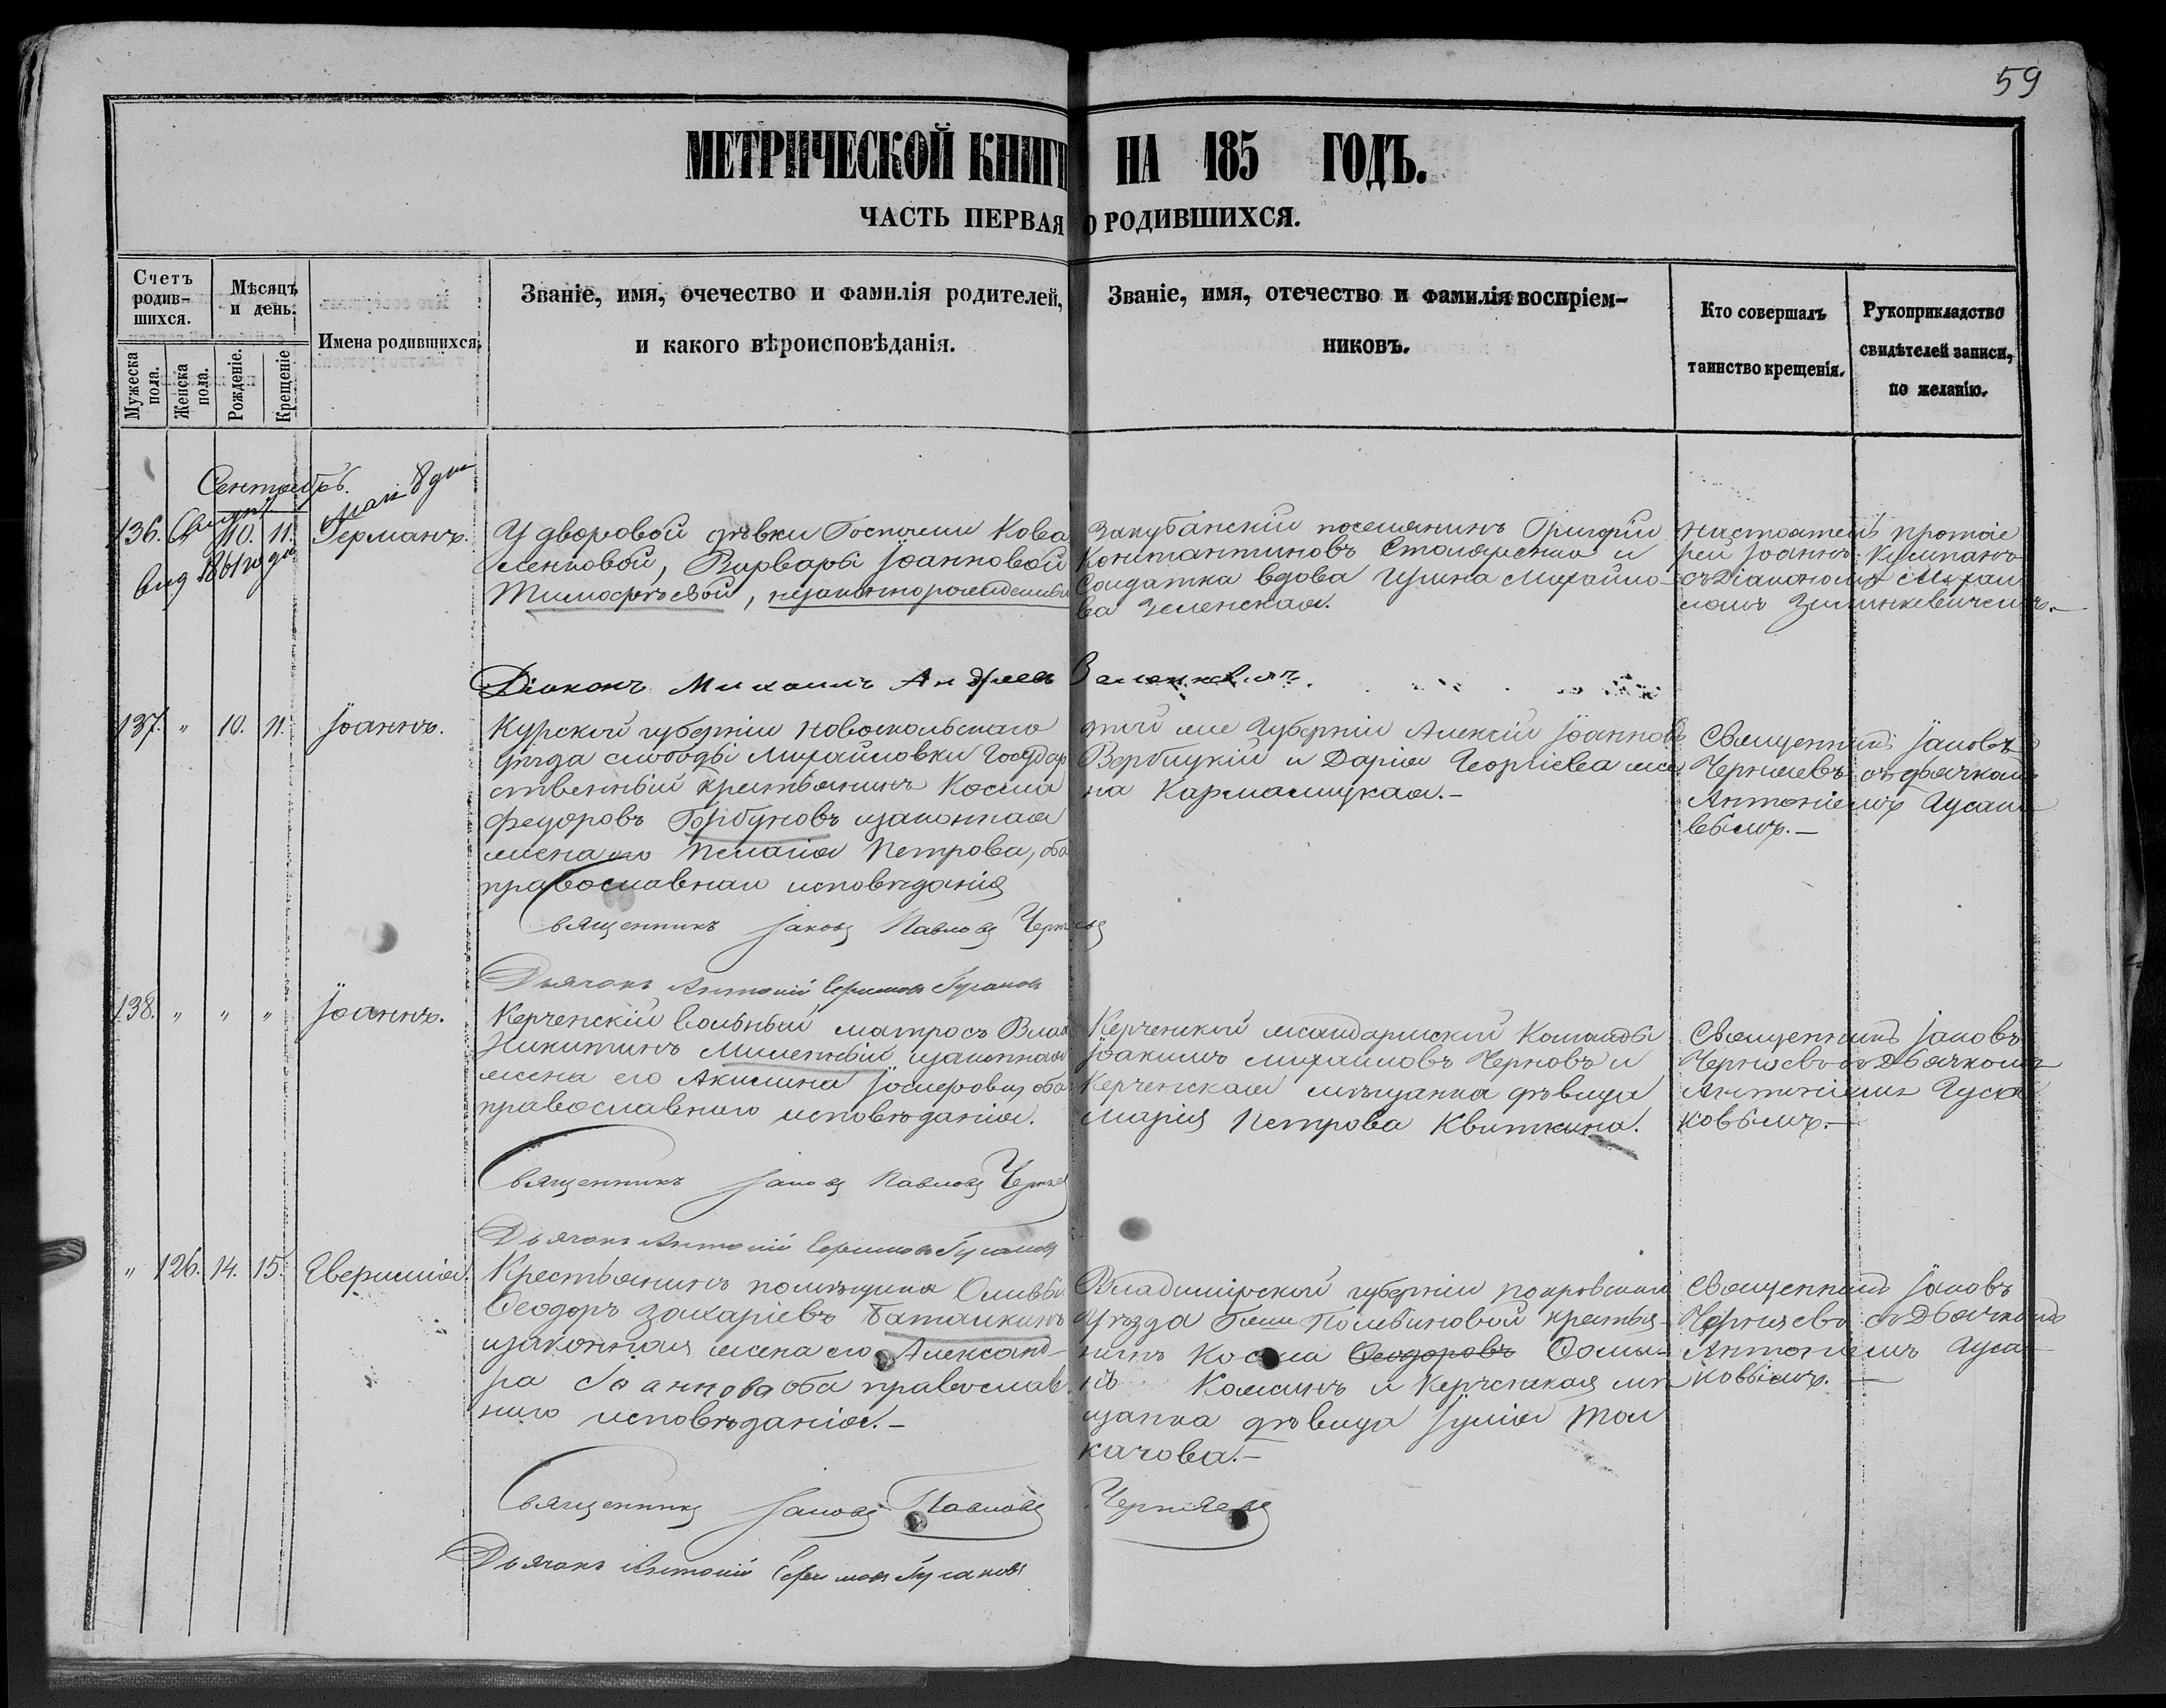 59
МЕТРИЧЕСКОЙ КНИГИ НА 185 ГОДЪ.
ЧАСТЬ ПЕРВАЯ О РОДИВШИХСЯ.
Счетъ родив-шихся.
Мужеска пола.
Женска пола.
Мѣсяцъ и день.
Рожденіе.
Крещеніе
Имена родившихся.
Званіе, имя, очечество и фамилія родителей,
и какого вѣроисповѣданія.
Званіе, имя, отечество и фамилія воспріем-
никовъ.
Кто совершалъ
таинство крещенія.
Рукоприкладство
свидѣтелей записи,
по желанію.
Сентябрь.
136.
10. 11.
Германъ.
У дворовой дѣвки Госпожи Кова
ленковой, Варвары Іоанновой
Тимофѣевой, незаконнорожденный
Закубанскій поселянинъ Григорій
Константиновъ и
Солдатка вдова Ирина Михайло-
ва Зеленская.
Настоятель протоіе
рей Іоаннъ
съ Діакономъ Михаи
ломъ
Діаконъ Михаилъ Андреевъ
137. " 10. 11.
Іоаннъ.
Курской губерніи Новооскольскаго
уѣзда слободы Михайловки Государ
ственный крестьянинъ Косма
Федоровъ Горбуновъ и законная
жена его Пелагія Петрова, оба
православнаго исповѣданія
той же Губерніи Алексій Іоанновъ
Вербицкій и Дарія Георгіева же
на
Священникъ Іаковъ
Черняевъ съ дьячкомъ
Антоніемъ Гусако
вымъ.—
Священникъ Іаковъ Павловъ Черняевъ
Дьячокъ Антоній Гусаковъ
138. " " "
Іоаннъ.
Керченскій вольный матросъ Власъ
Никитинъ и законная
жена его Акилина Іосифова, оба
православнаго исповѣданія.
Керченской жандармской Команды
Іоакимъ Михайловъ Черновъ и
Керченская мѣщанка дѣвица
Марія Петрова Квиткина.
Священникъ Іаковъ
Черняевъ съ Дьячкомъ
Антоніемъ Гуса
ковымъ.—
Священникъ Іаковъ Павловъ Черняевъ
Дьячокъ Антоній Гусаковъ
" 126. 14. 15.
Крестьянинъ помѣщика
Ѳеодоръ Захаріевъ Баташкинъ
и законная жена его Александ-
ра Іоаннова оба православ
наго исповѣданія.—
Владимірской губерніи Покровскаго
уѣзда Поливановой крестья-
нинъ Косма Ѳеодоровъ Ѳоми-
нъ и Керченская мѣ
щанка дѣвица Іулія Тол
качова.—
Священникъ Іаковъ
Черняевъ съ Дьячкомъ
Антоніемъ Гуса
ковымъ.—
Священникъ Іаковъ Павловъ Черняевъ
Дьячокъ Антоній Гусаковъ